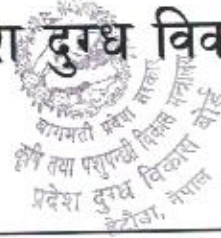 दुग्ध विक
बागमती प्रदेश सरकार
कृषि तथा पशुपन्छी विकास मन्त्रालय
प्रदेश दुग्ध विकास बोर्ड
हेटौंडा, नेपाल